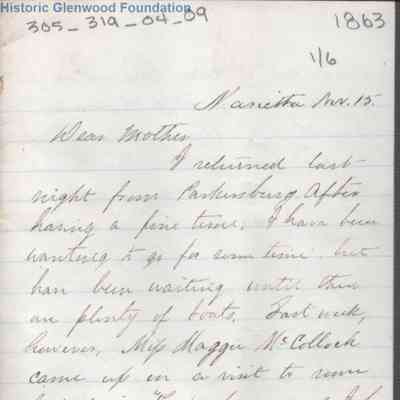 Historic Glenwood Foundation
305-319-04-09
1863
1/6
Marietta Nov. 15.
Dear Mother
I returned last
night from Parkersburg after
having a fine time. I have been
wanting to go for some time but
have been waiting until there
are plenty of boats. Last week,
however, Miss Maggie McColloch
came up on a visit to some